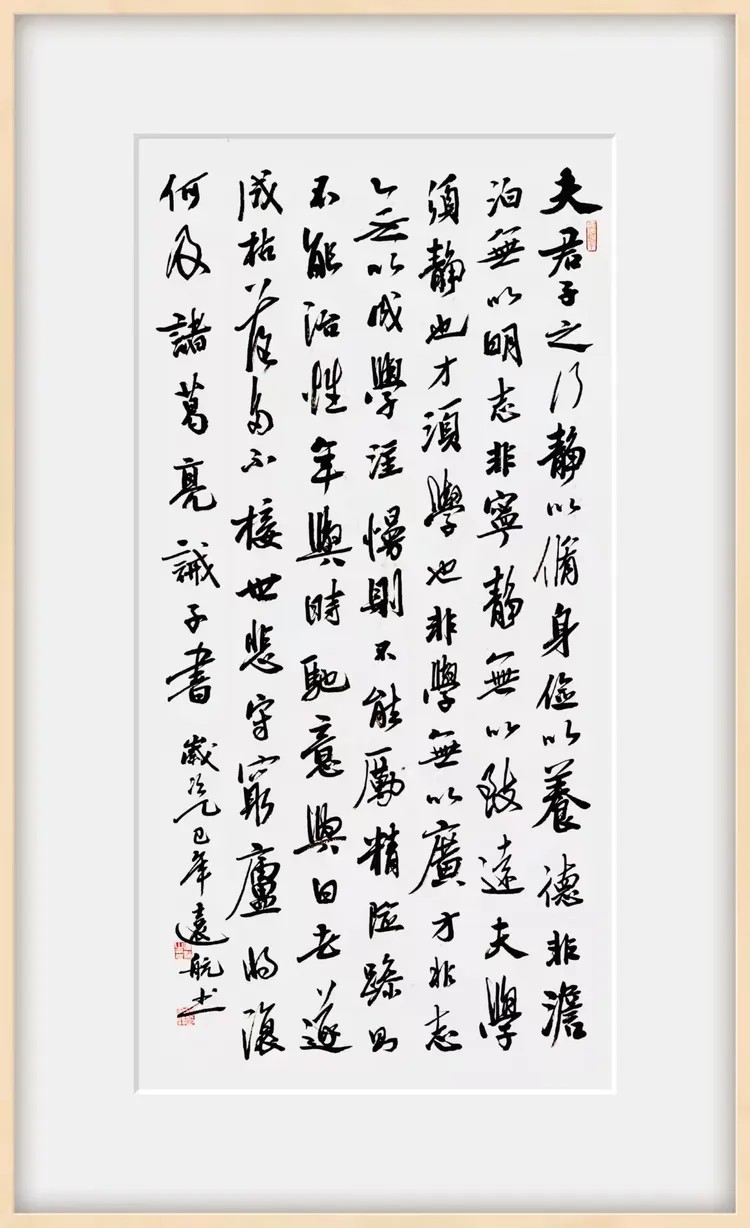 夫君子之行静以脩身儉以養德非澹
泊無以明志非寧静無以致遠夫學
須静也才須學也非學無以廣才非志
無以成學淫慢則不能勵精險躁則
不能治性年與時馳意與日去遂
成枯落多不接世悲守窮廬將復
何及諸葛亮誡子書
歲次乙巳年遠航书